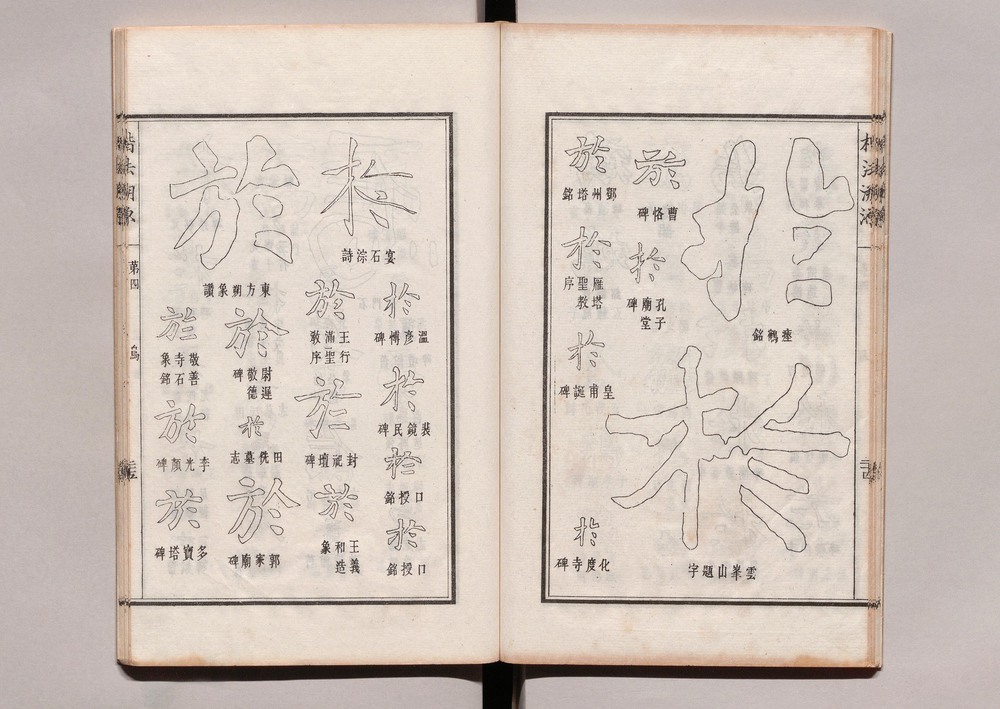 楷法溯源
於
瘞鶴銘
於
雲峯山題字
於
曹恪碑
於
孔子廟堂碑
於
鄧州塔銘
於
雁塔聖教序
於
皇甫誕碑
於
化度寺碑
於
宴石淙詩
於
溫彥博碑
於
裴鏡民碑
於
口授銘
於
口授銘
於
王行滿聖教序
於
封祀壇碑
於
王義和造象
於
東方朔象讚
於
尉遲敬德碑
於
田侁墓志
於
郭家廟碑
於
敬善寺石象銘
於
李光顏碑
於
多寶塔碑
楷法溯源
第四
烏